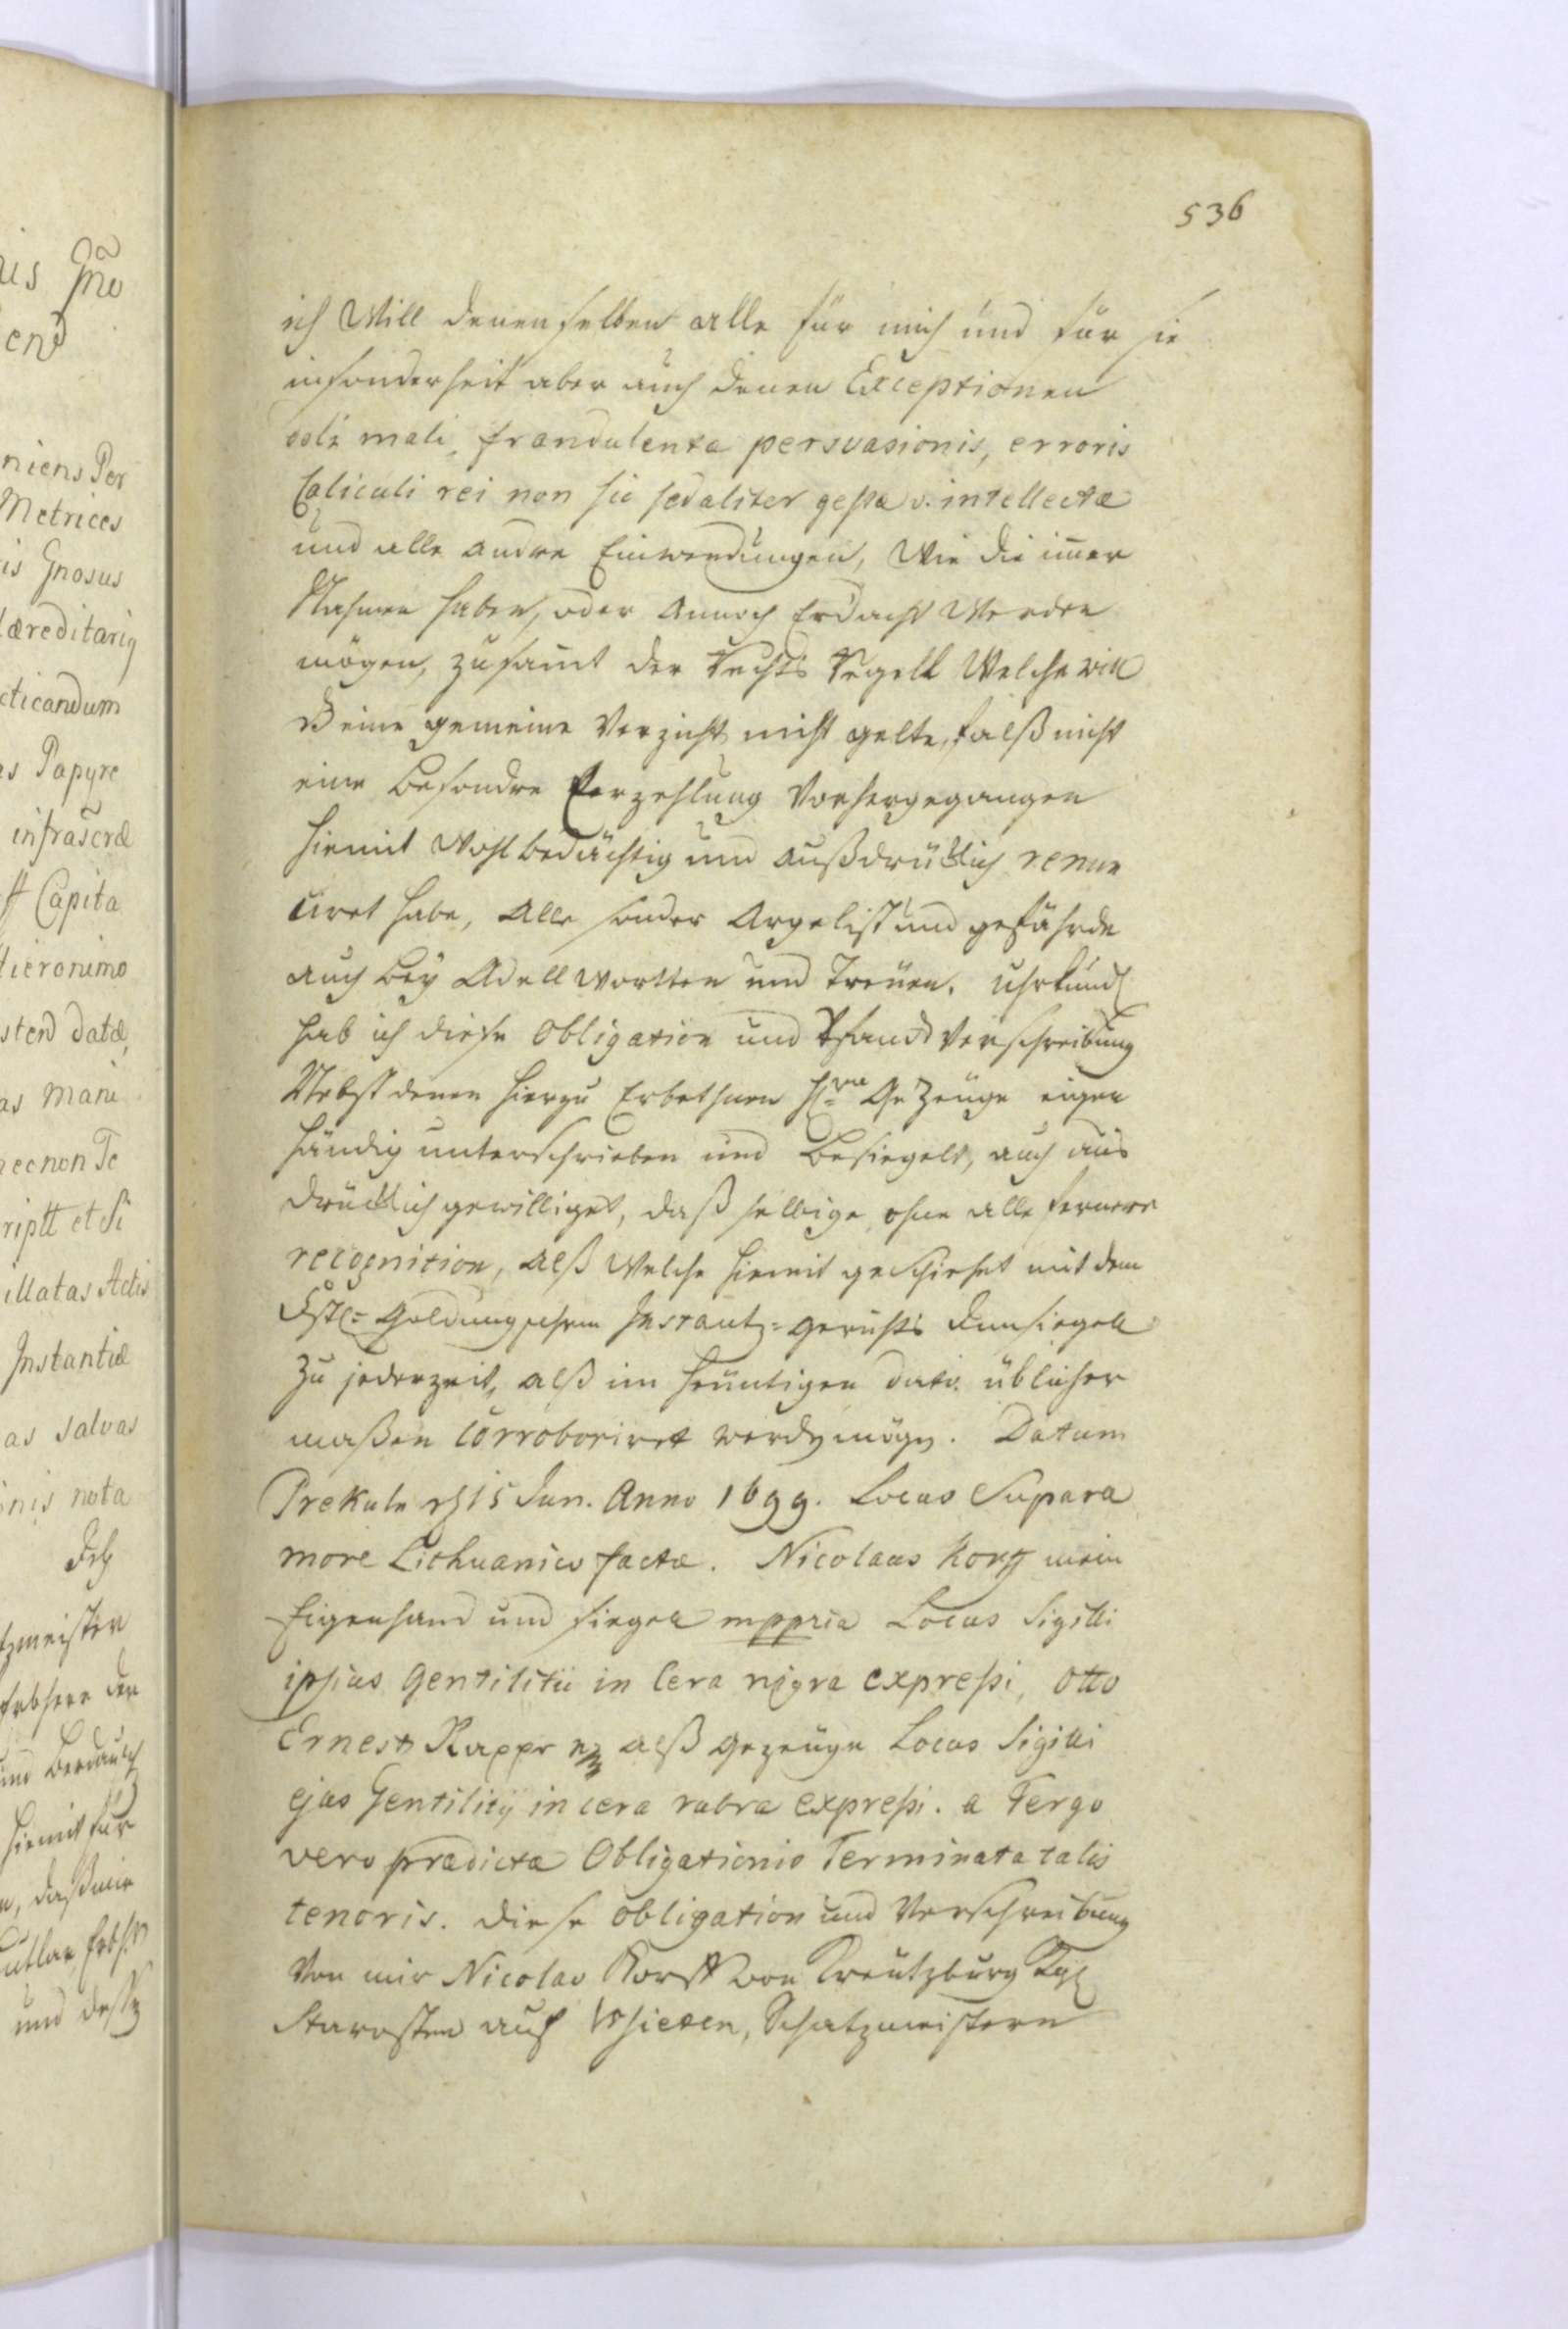 536
ich Will denenselben alle für mich und für sie
insonderheit aber auch denen Exceptionen
doli mali, fraudulenta persvasionis, erroris
Caliculi rei non sic sed aliter gestæ v. intellectæ
und alle andre Einwendungen, Wie die imer
Nahmen haben, oder annoch Erdacht Werden
mögen, zusamt der Rechts Regell Welche will
eine gemeine Verzicht nicht gelte, falß nicht
eine besondre Verzehlung Vorhergegangen
hiemit Wohlbedächtig und außdrücklich renun
ciret habe, Alles sonder Argelist und gefährde
auch bey Adell wortten und Treüen. Uhrkundl
hab ich diese Obligation und Pfand Verschreibung
Nebst denen hierzu Erbethnen H. GeZeüge eigen
händig unterschrieben und besiegelt, auch aus
drücklich gewilliget, daß selbige ohne alle fernere
recognition, alß Welche hiemit geschiehet mit dem
Fstl= Goldingschem Instantz=gerichts Einsiegell
zu jederzeit, alß im heüntigen dato. üblicher
maßen corroboriret werdn mögn. Datum
Prekuln d 15 Jun. Anno 1699. Locus Supara
more Lithuanico factæ. Nicolaus Korff mein
Eigenhand und Siegel mppria Locus Sigilli
ipsius Gentilitii in Cera nigra expreßi, Otto
Ernest Rappe alß gezeüge Locus Sigilli
ejus Gentilitij in cera rubra expreßi. a Tergo
vero prædictæ Obligationis Terminata talis
tenoris. diese obligation und Verschreibung
Von mir Nicolao Korff von Kreutzburg Kgl
Starosten auf Schatzmeistern